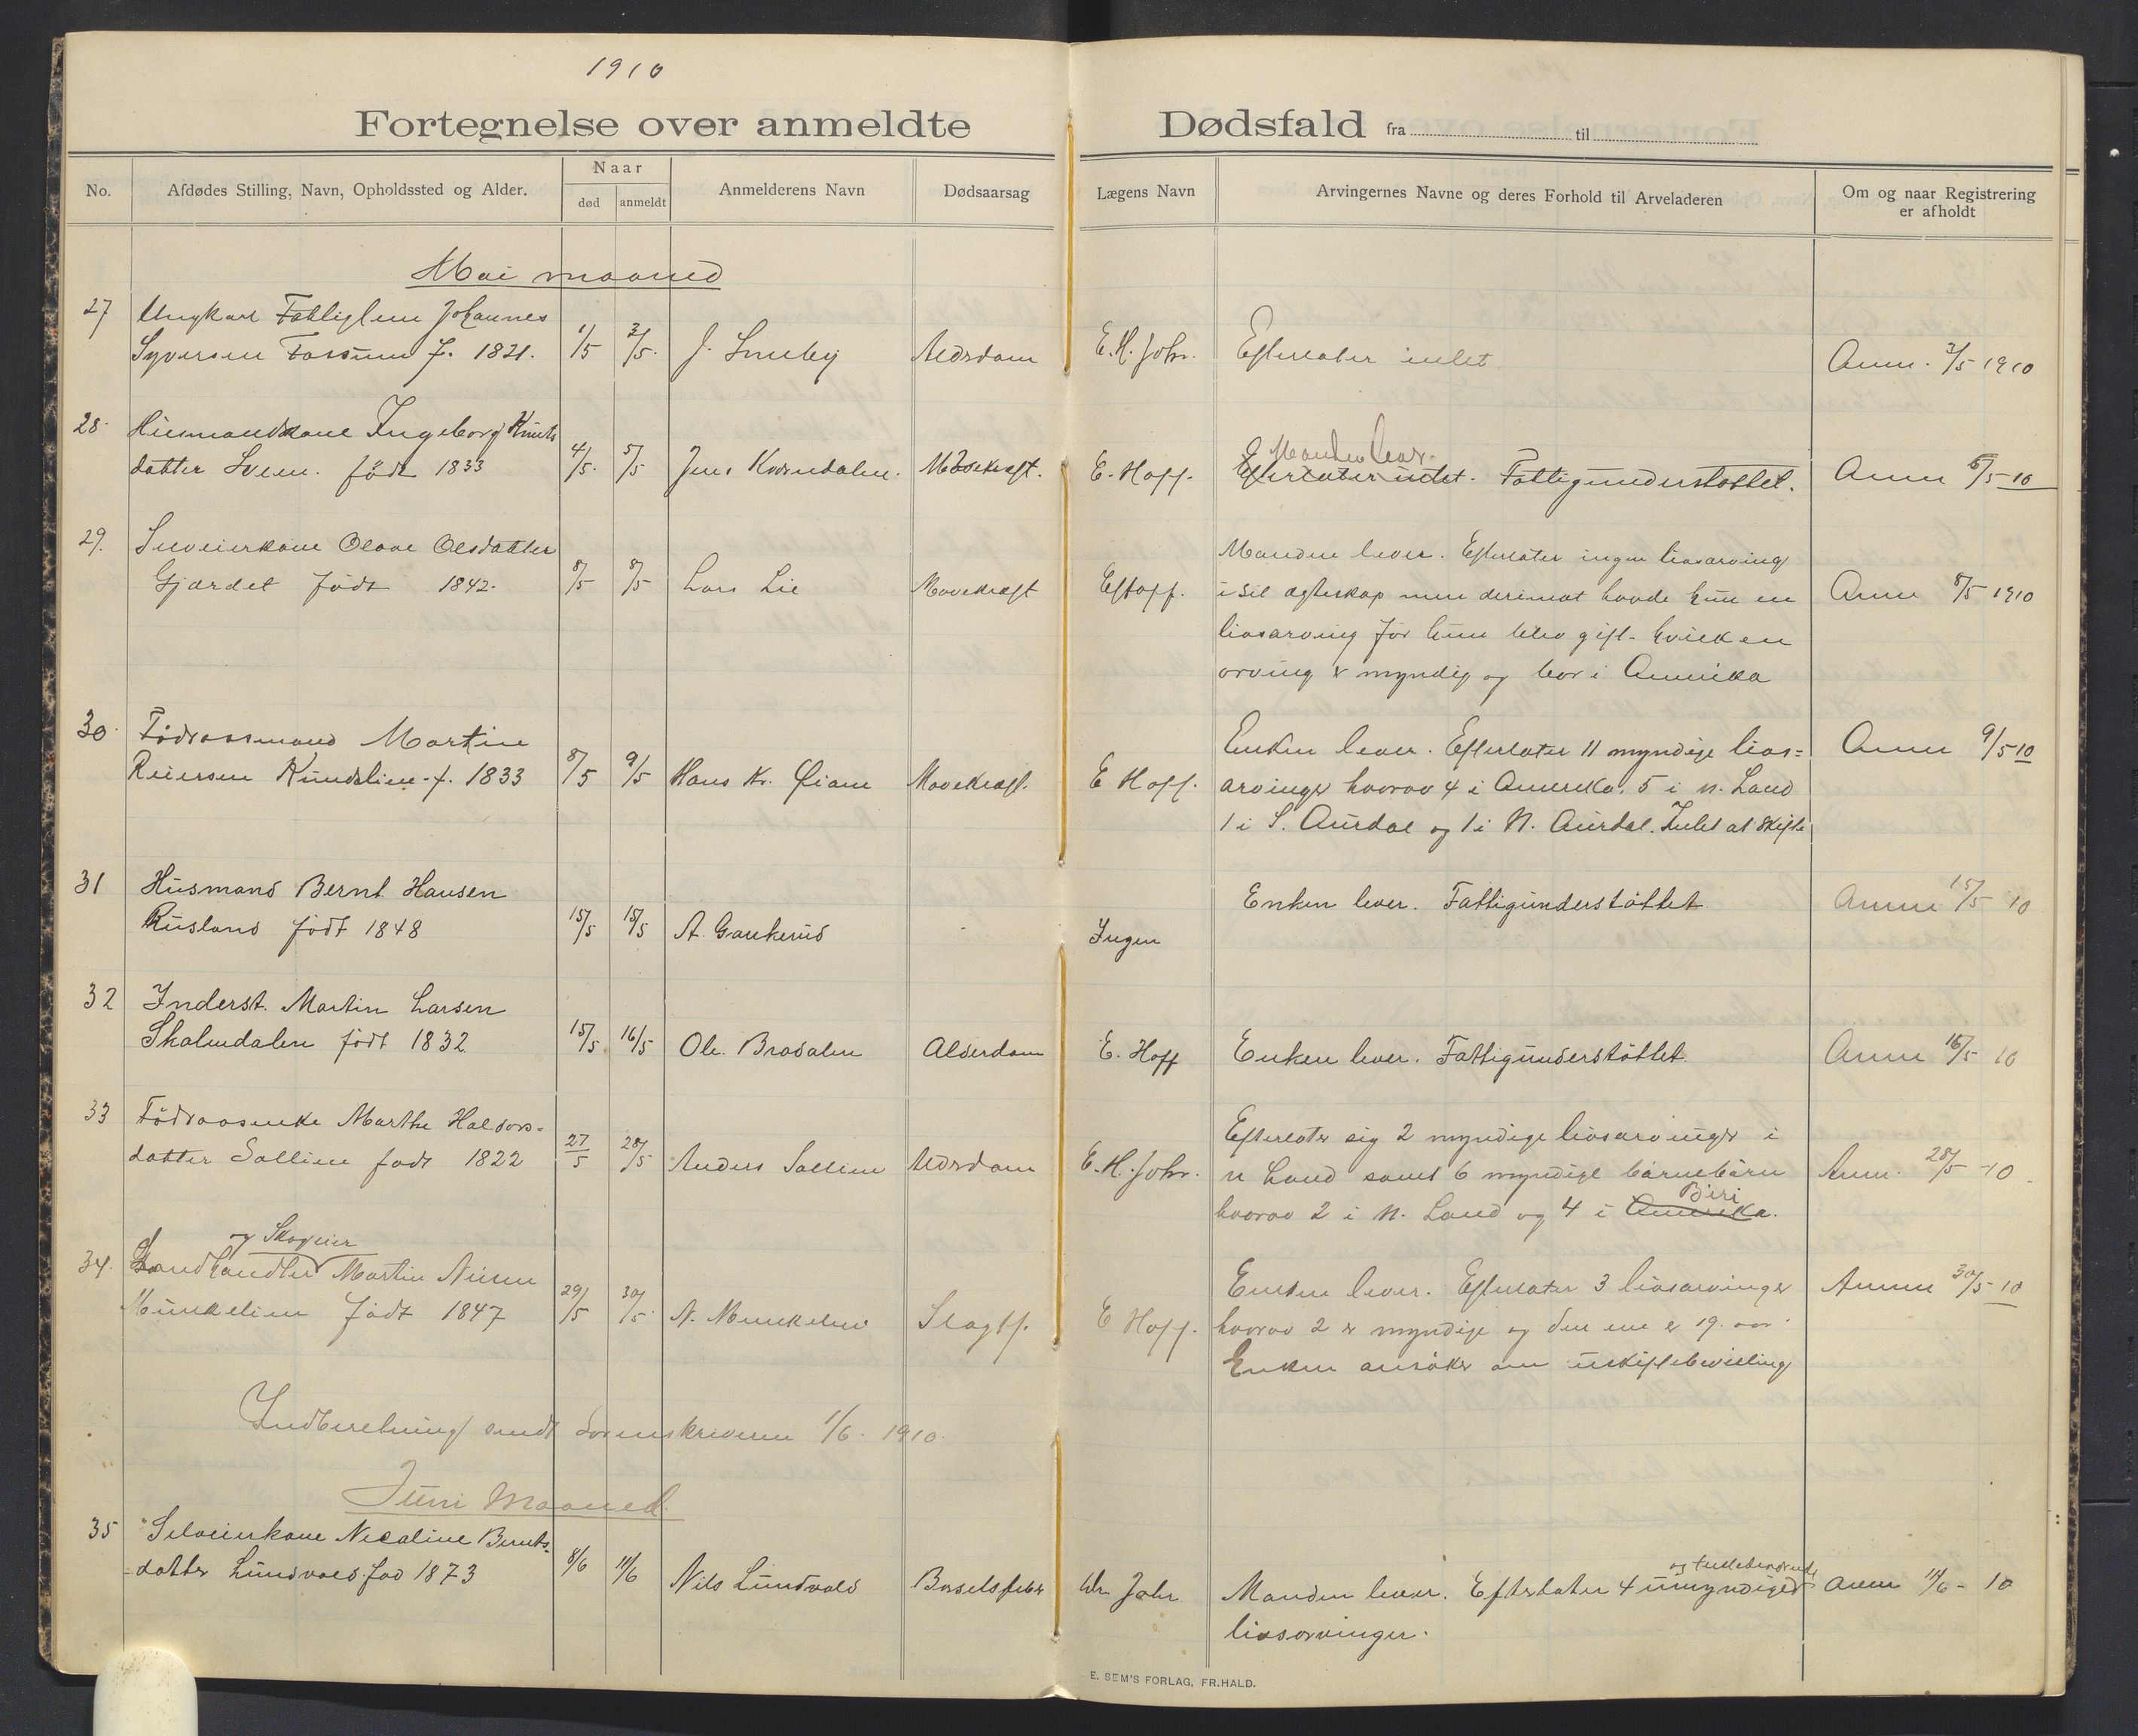 1910
Fortegnelse over anmeldte Dødsfald fra til
No.
Afdødes Stilling, Navn, Opholdssted og Alder.
Naar
død
anmeldt
Anmelderens Navn
Dødsaarsag
Lægens Navn
Arvingernes Navne og deres Forhold til Arveladeren
Om og naar Registrering
er afholdt
Mai maaned
27 Ungkarl Johannes
Syversen Fossum f. 1821. 1/5 3/5. J. Smeby Aldrdom E. H. Johr. Efterlater intet Anm. 3/5 1910
28 Husmandskone Ingeborg Knuts
datter Sveen. født 1833 4/5. 5/5 Jens Kvorndalen. Mavekræft. E. Hoff. Efterlater intet. Fattigunderstøttet. Anm 6/5-10
Manden lever.
29. Selveierkone Olave Olsdatter
Gjærdet født 1842. 8/5 8/5 Lars Lie Mavekræft E Hoff. Anm 8/5 1910
Manden lever. Efterlater ingen livsarving
i sit egteskap men derimot havde hun en
livsarving før hun blev gift. hvilken
arving er myndig og bor i Amerika
30. Føderaasmand Martin
Reiersen Rundslien f. 1833 8/5 9/5 Hans Kr. Øiom Mavekræft. E Hoff. Anm 9/5 10
Enken lever. Efterlater 11 myndige livs=
arvinger hvorav 4 i Amerika, 5 i N. Land
1 i S. Aurdal og 1 i N. Aurdal. Intet at skifte
31 Husmand Bernt Hansen
Rusland født 1848 15/5 15/5 A. Gaukerud Ingen Enken lever. Fattigunderstøttet Anm 15/5 10
32 Inderst. Martin Larsen
Skalmdalen født 1832 15/5 16/5 Ole Brodalen Alderdom E. Hoff Enken lever. Fattigunderstøttet. Anm 16/5 10
33 Føderaasenke Marthe Haldors-
datter Sollien født 1822 27/5 28/5 Anders Sollien Aldrdom E. H. Johr. Anm. 28/5-10
Efterlater sig 2 myndige livsarvinger i
N Land samt 6 myndige barnebarn
hvorav 2 i N. Land og 4 i Amerika.
Biri
og Skogeier
34. Landhandler Martin Nilsen
Munkelien født 1847 29/5 30/5 N. Munkelien Slagtf. E Hoff. Anm 30/5-10
Enken lever. Efterlater 3 livsarvinger
hvorav 2 er myndige og den ene er 19. aar.
Enken ansøker om uskiftebevilling
Indberetning sendt Sorenskriveren 1/6. 1910.
Juni Maaned.
35 Selveierkone Nicoline Bernts-
datter Lundvold fød 1873 8/6 11/6 Nils Lundvold Barselsfeber Dr. Johr. Manden lever. Efterlater 4 umyndige Anm 11/6-10
livsarvinger.
E. SEM'S FORLAG, FR.HALD.